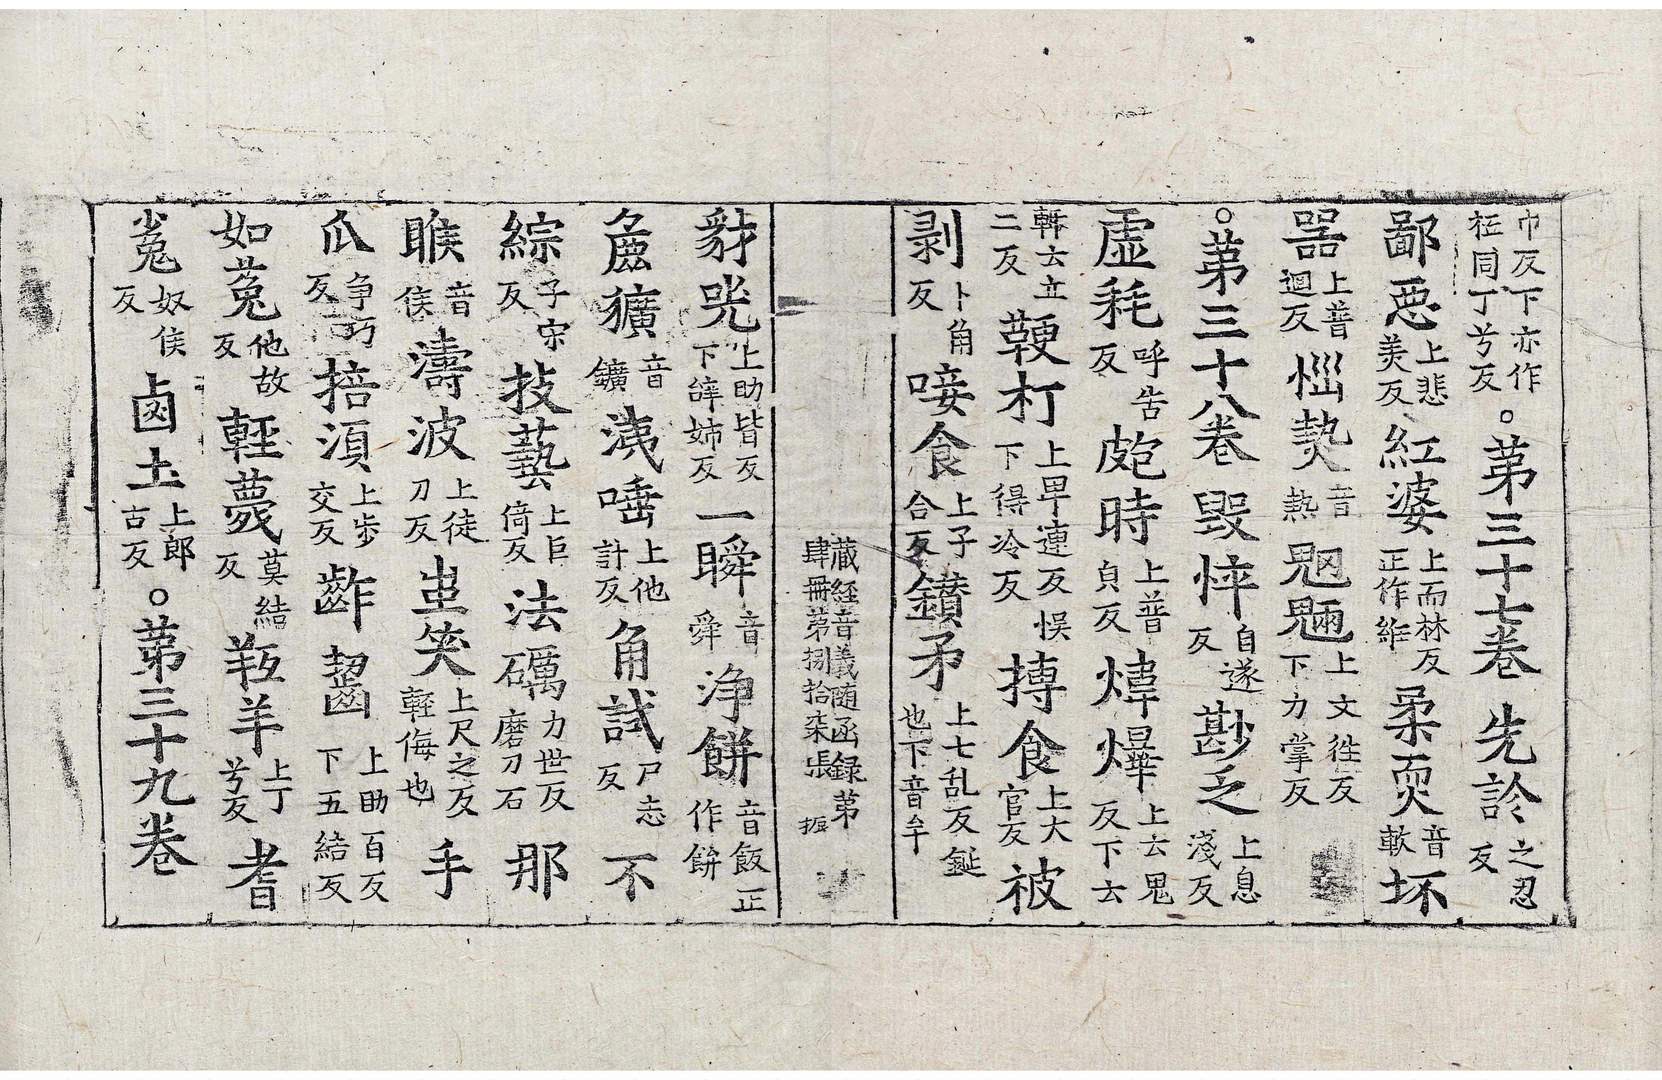 巾反下亦作𥘵同丁兮反○第三十七卷 先診之忍反
鄙惡上悲美反 紅婆上而林反正作紝 柔耎音軟 坏
噐上普迴反 惱𤍠音熱 魍魎上文往反下力掌反
○第三十八卷 毀悴自遂反 尠乏上息淺反
虛耗呼告反 皰時上普皃反 煒燁上云鬼反下云
輙云立二反 鞕打上卑連反悮下得冷反 摶食上大官反 被
剥卜角反 唼食上子合反 鑹矛上七乱反鋋也下音牟
藏經音義随函録第肆冊第捌拾柒張 振
豺㺉上助皆反下辞姉反 一瞬音舜 淨餅音飯正作餅
麁獷音鑛 洟唾上他計反 角試尸志反 不
綜子宋反 技藝上巨倚反 法礪力世反磨刀石 那
睺音侯 濤波上徒刀反 蚩笑上尺之反輕侮也 手
爪争巧反 掊須上步交反 齚齧上助百反下五結反
如菟他故反 輕薎莫結反 羝羊上丁兮反 耆
㝹奴侯反 鹵土上郎古反 ○第三十九卷